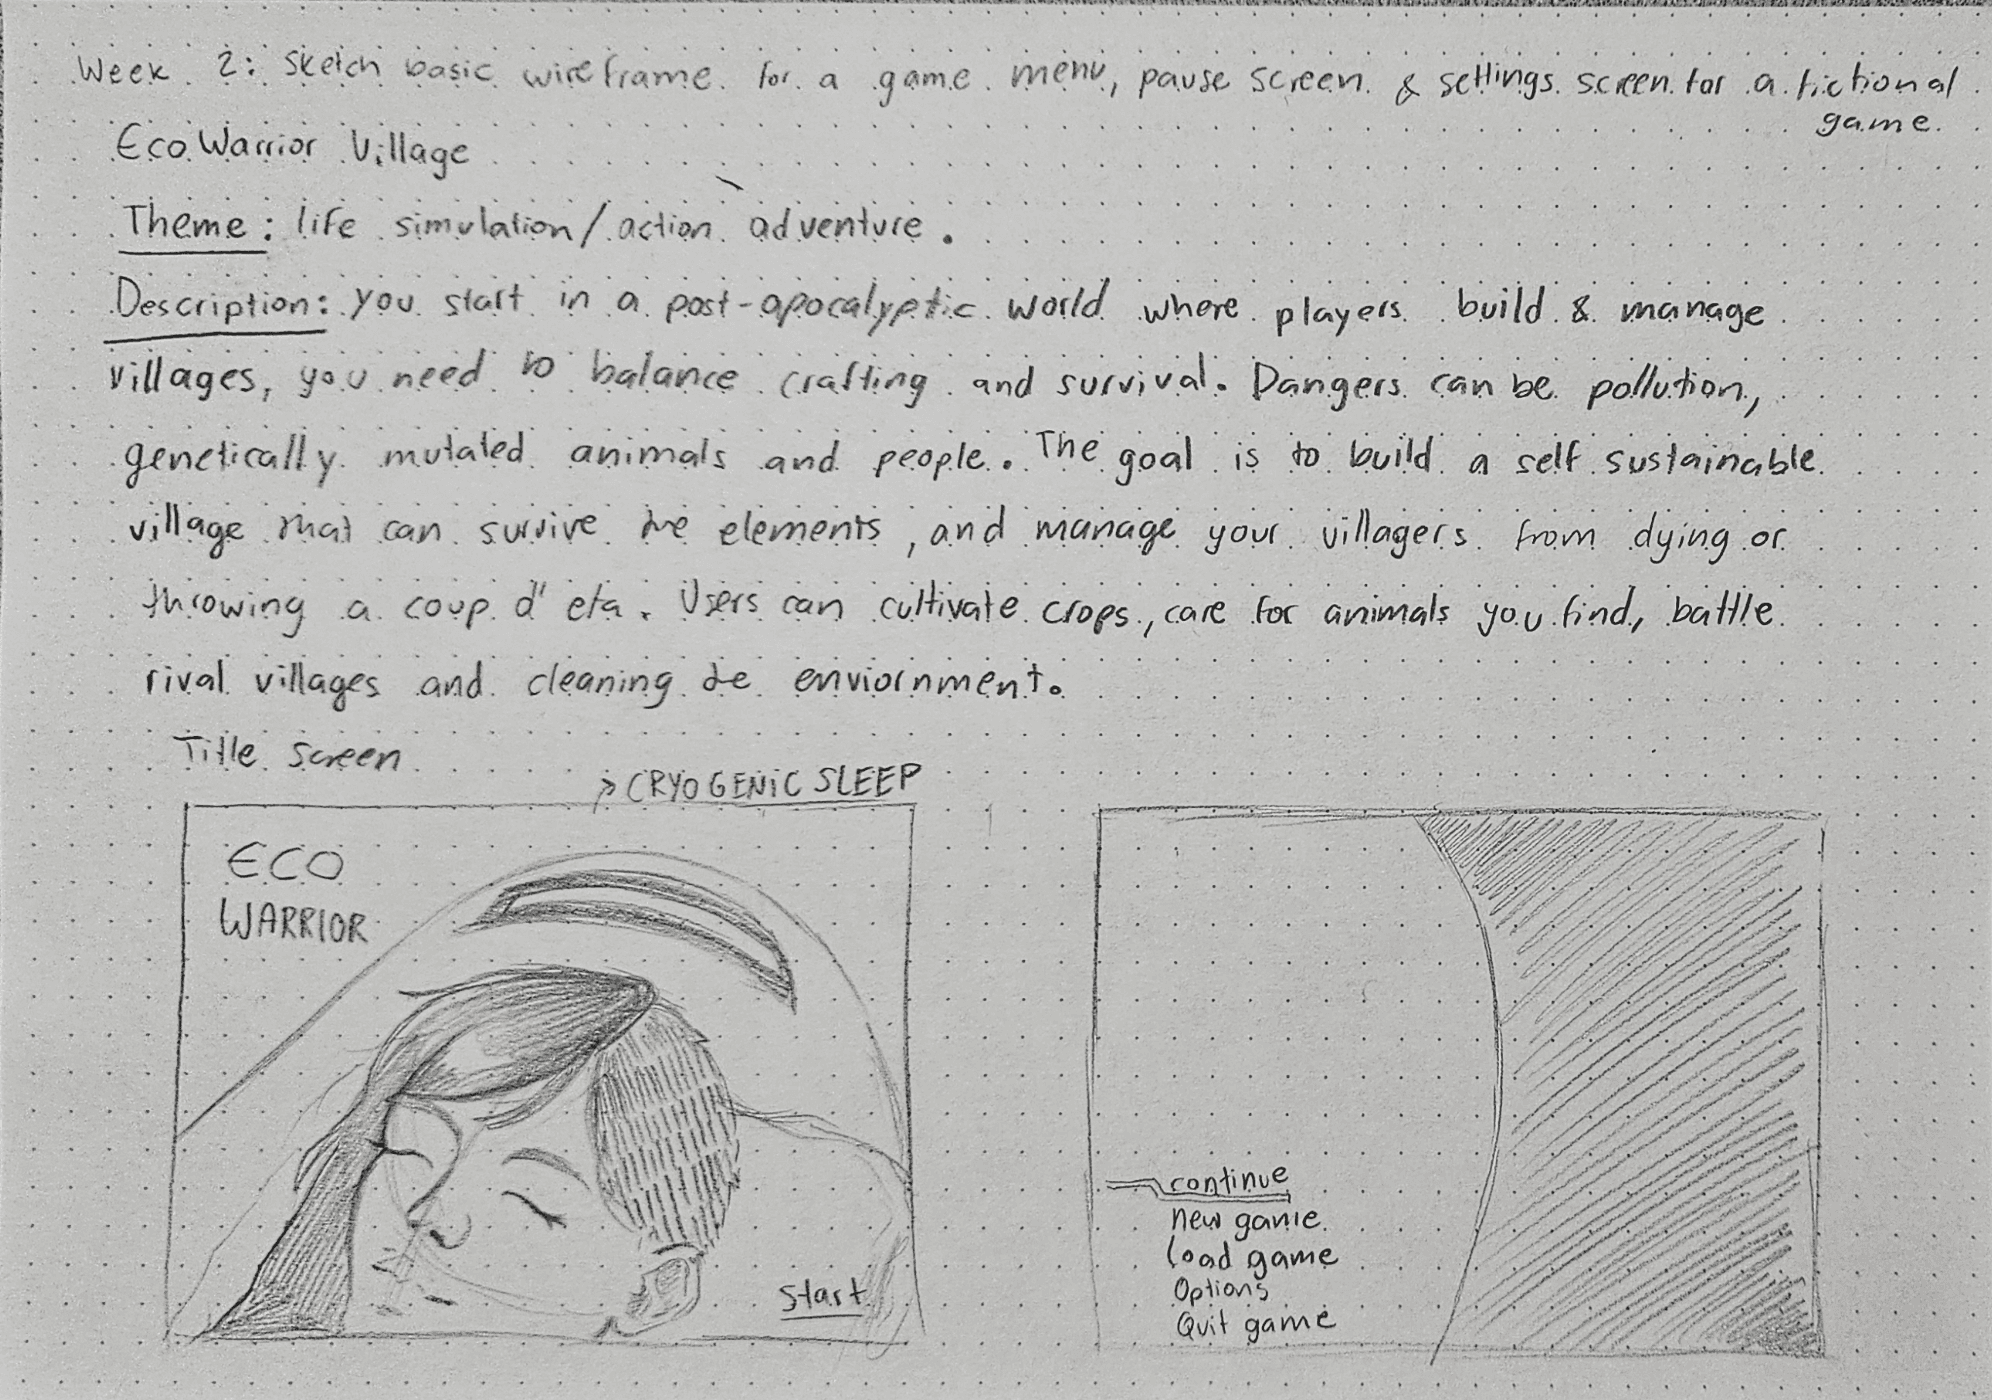 Week 2: Sketch basic wireframe for a game menu, pause screen & settings screen for a fictional
game.
Eco Warrior Village
Theme: life simulation/action adventure.
Description: you start in a post-apocalyptic world where players build & manage
villages, you need to balance crafting and survival. Dangers can be pollution,
genetically mutated animals and people. The goal is to build a self sustainable
village that can survive the elements, and manage your villagers from dying or
throwing a coup d' eta. Users can cultivate crops, care for animals you find, battle
rival villages and cleaning the enviornment.
Title screen
→ CRYOGENIC SLEEP
ECO
WARRIOR
Start
continue
New game
load game
Options
Quit game